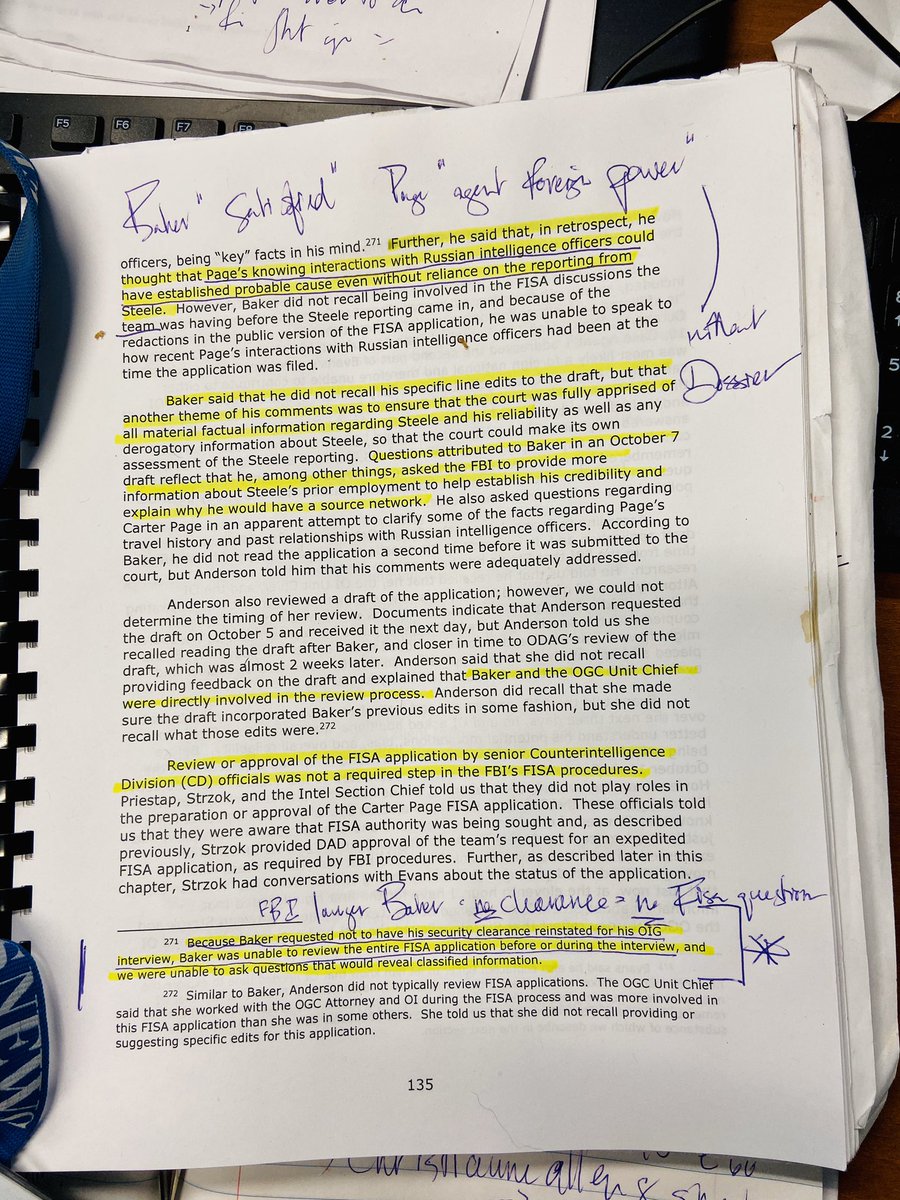 F5
F6
F7
F8
Baker "Satisfied" Page "agent foreign power"
officers, being "key" facts in his mind.271 Further, he said that, in retrospect, he
thought that Page's knowing interactions with Russian intelligence officers could
have established probable cause even without reliance on the reporting from
Steele. However, Baker did not recall being involved in the FISA discussions the
team was having before the Steele reporting came in, and because of the
redactions in the public version of the FISA application, he was unable to speak to
how recent Page's interactions with Russian intelligence officers had been at the
time the application was filed.
without
Dossier
Baker said that he did not recall his specific line edits to the draft, but that
another theme of his comments was to ensure that the court was fully apprised of
all material factual information regarding Steele and his reliability as well as any
derogatory information about Steele, so that the court could make its own
assessment of the Steele reporting. Questions attributed to Baker in an October 7
draft reflect that he, among other things, asked the FBI to provide more
information about Steele's prior employment to help establish his credibility and
explain why he would have a source network. He also asked questions regarding
Carter Page in an apparent attempt to clarify some of the facts regarding Page's
travel history and past relationships with Russian intelligence officers. According to
Baker, he did not read the application a second time before it was submitted to the
court, but Anderson told him that his comments were adequately addressed.
Anderson also reviewed a draft of the application; however, we could not
determine the timing of her review. Documents indicate that Anderson requested
the draft on October 5 and received it the next day, but Anderson told us she
recalled reading the draft after Baker, and closer in time to ODAG's review of the
draft, which was almost 2 weeks later. Anderson said that she did not recall
providing feedback on the draft and explained that Baker and the OGC Unit Chief
were directly involved in the review process. Anderson did recall that she made
sure the draft incorporated Baker's previous edits in some fashion, but she did not
recall what those edits were.272
Review or approval of the FISA application by senior Counterintelligence
Division (CD) officials was not a required step in the FBI's FISA procedures.
Priestap, Strzok, and the Intel Section Chief told us that they did not play roles in
the preparation or approval of the Carter Page FISA application. These officials told
us that they were aware that FISA authority was being sought and, as described
previously, Strzok provided DAD approval of the team's request for an expedited
FISA application, as required by FBI procedures. Further, as described later in this
chapter, Strzok had conversations with Evans about the status of the application.
FBI lawyer Baker - no clearance = no Fisa question
271 Because Baker requested not to have his security clearance reinstated for his OIG
interview, Baker was unable to review the entire FISA application before or during the interview, and
we were unable to ask questions that would reveal classified information.
272 Similar to Baker, Anderson did not typically review FISA applications. The OGC Unit Chief
said that she worked with the OGC Attorney and OI during the FISA process and was more involved in
this FISA application than she was in some others. She told us that she did not recall providing or
suggesting specific edits for this application.
135
NEWS
2
5